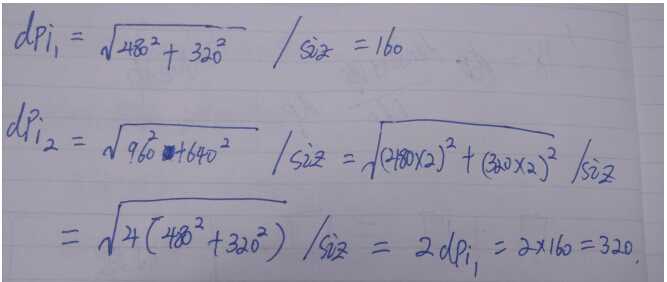 dpi₁ = √(480² + 320²) / siz = 160
dpi₂ = √(960² + 640²) / siz = √((480×2)² + (320×2)²) / siz
= √(4(480² + 320²)) / siz = 2 dpi₁ = 2×160 = 320.